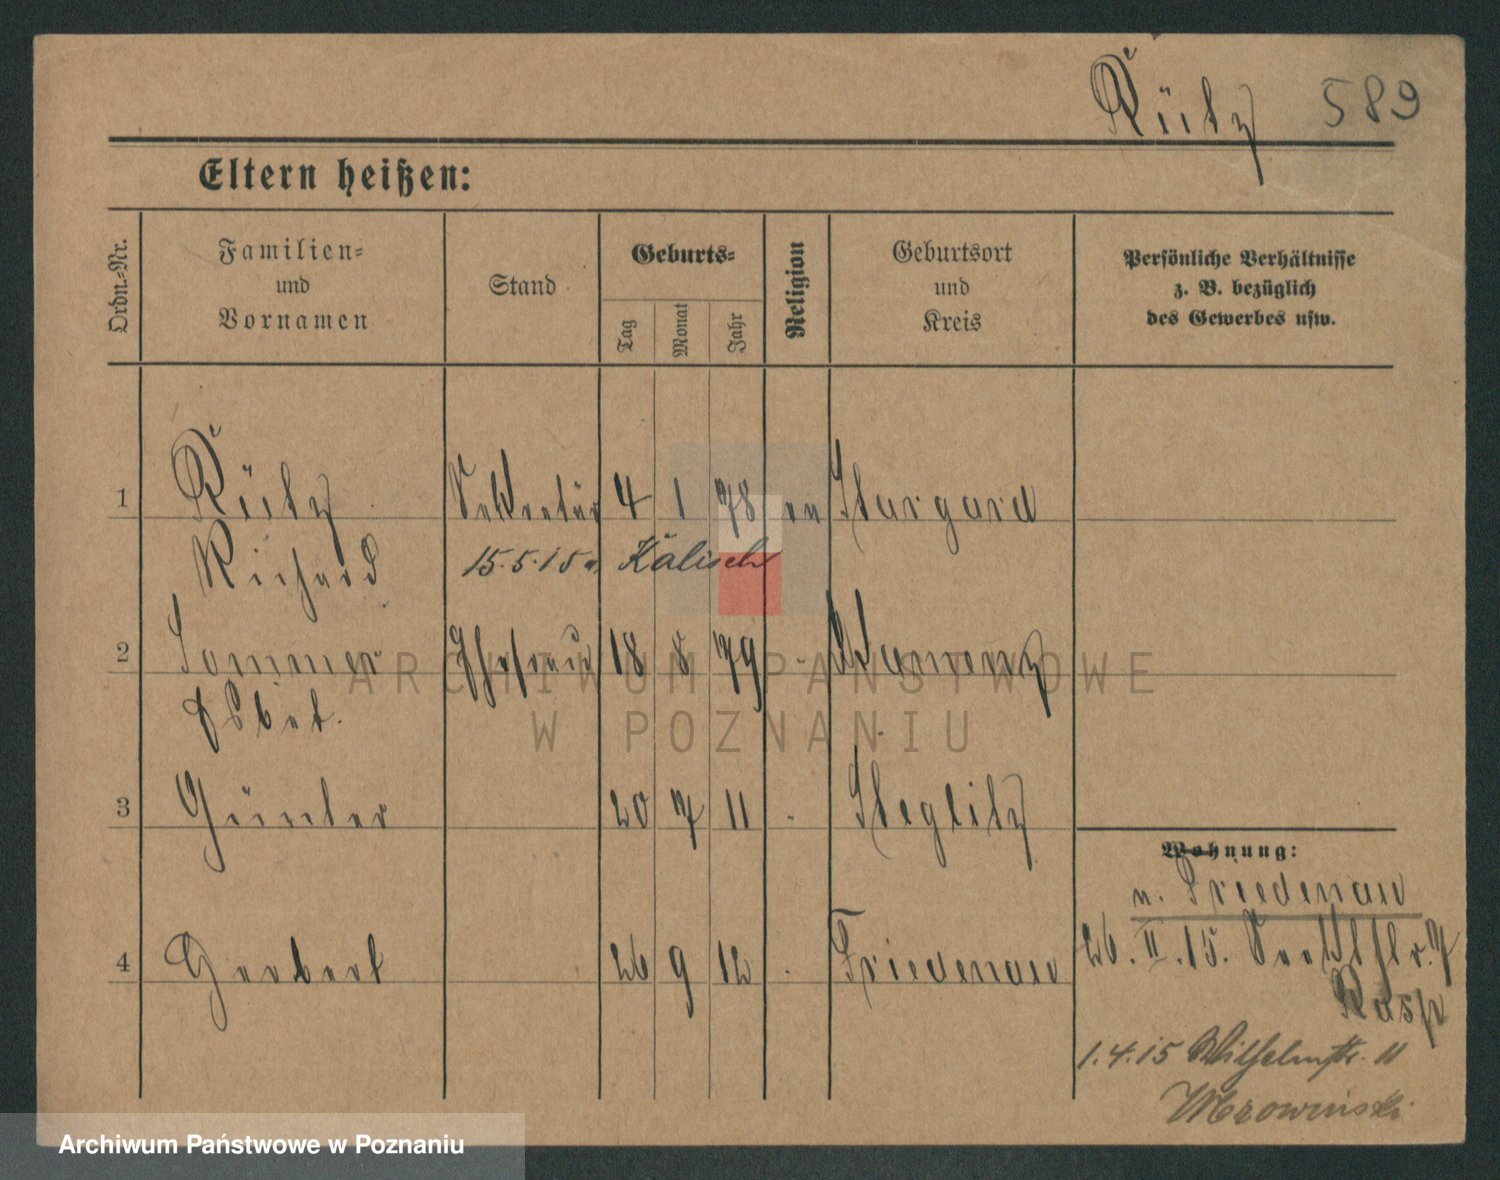 Rütz 589
Eltern heißen:
Ordn.-Nr.
Familien-
und
Vornamen
Stand
Geburts-
Tag
Monat
Jahr
Religion
Geburtsort
und
Kreis
Persönliche Verhältnisse
z. B. bezüglich
des Gewerbes usw.
1 Rütz Sekretär 4 1 78 ev Stargard
Richard 15.5.15 n. Kalisch
2 Sommer Ehefrau 18 8 79 " Kamenz
Elsbet.
3 Günter 20 7 11 " Steglitz
Wohnung:
v. Friedenau
4 Herbert 26 9 12 " Friedenau
26.II.15.
1.4.15 Wilhelmstr. 11
Mrowinski
ARCHIWUM PAŃSTWOWE
W POZNANIU
Archiwum Państwowe w Poznaniu